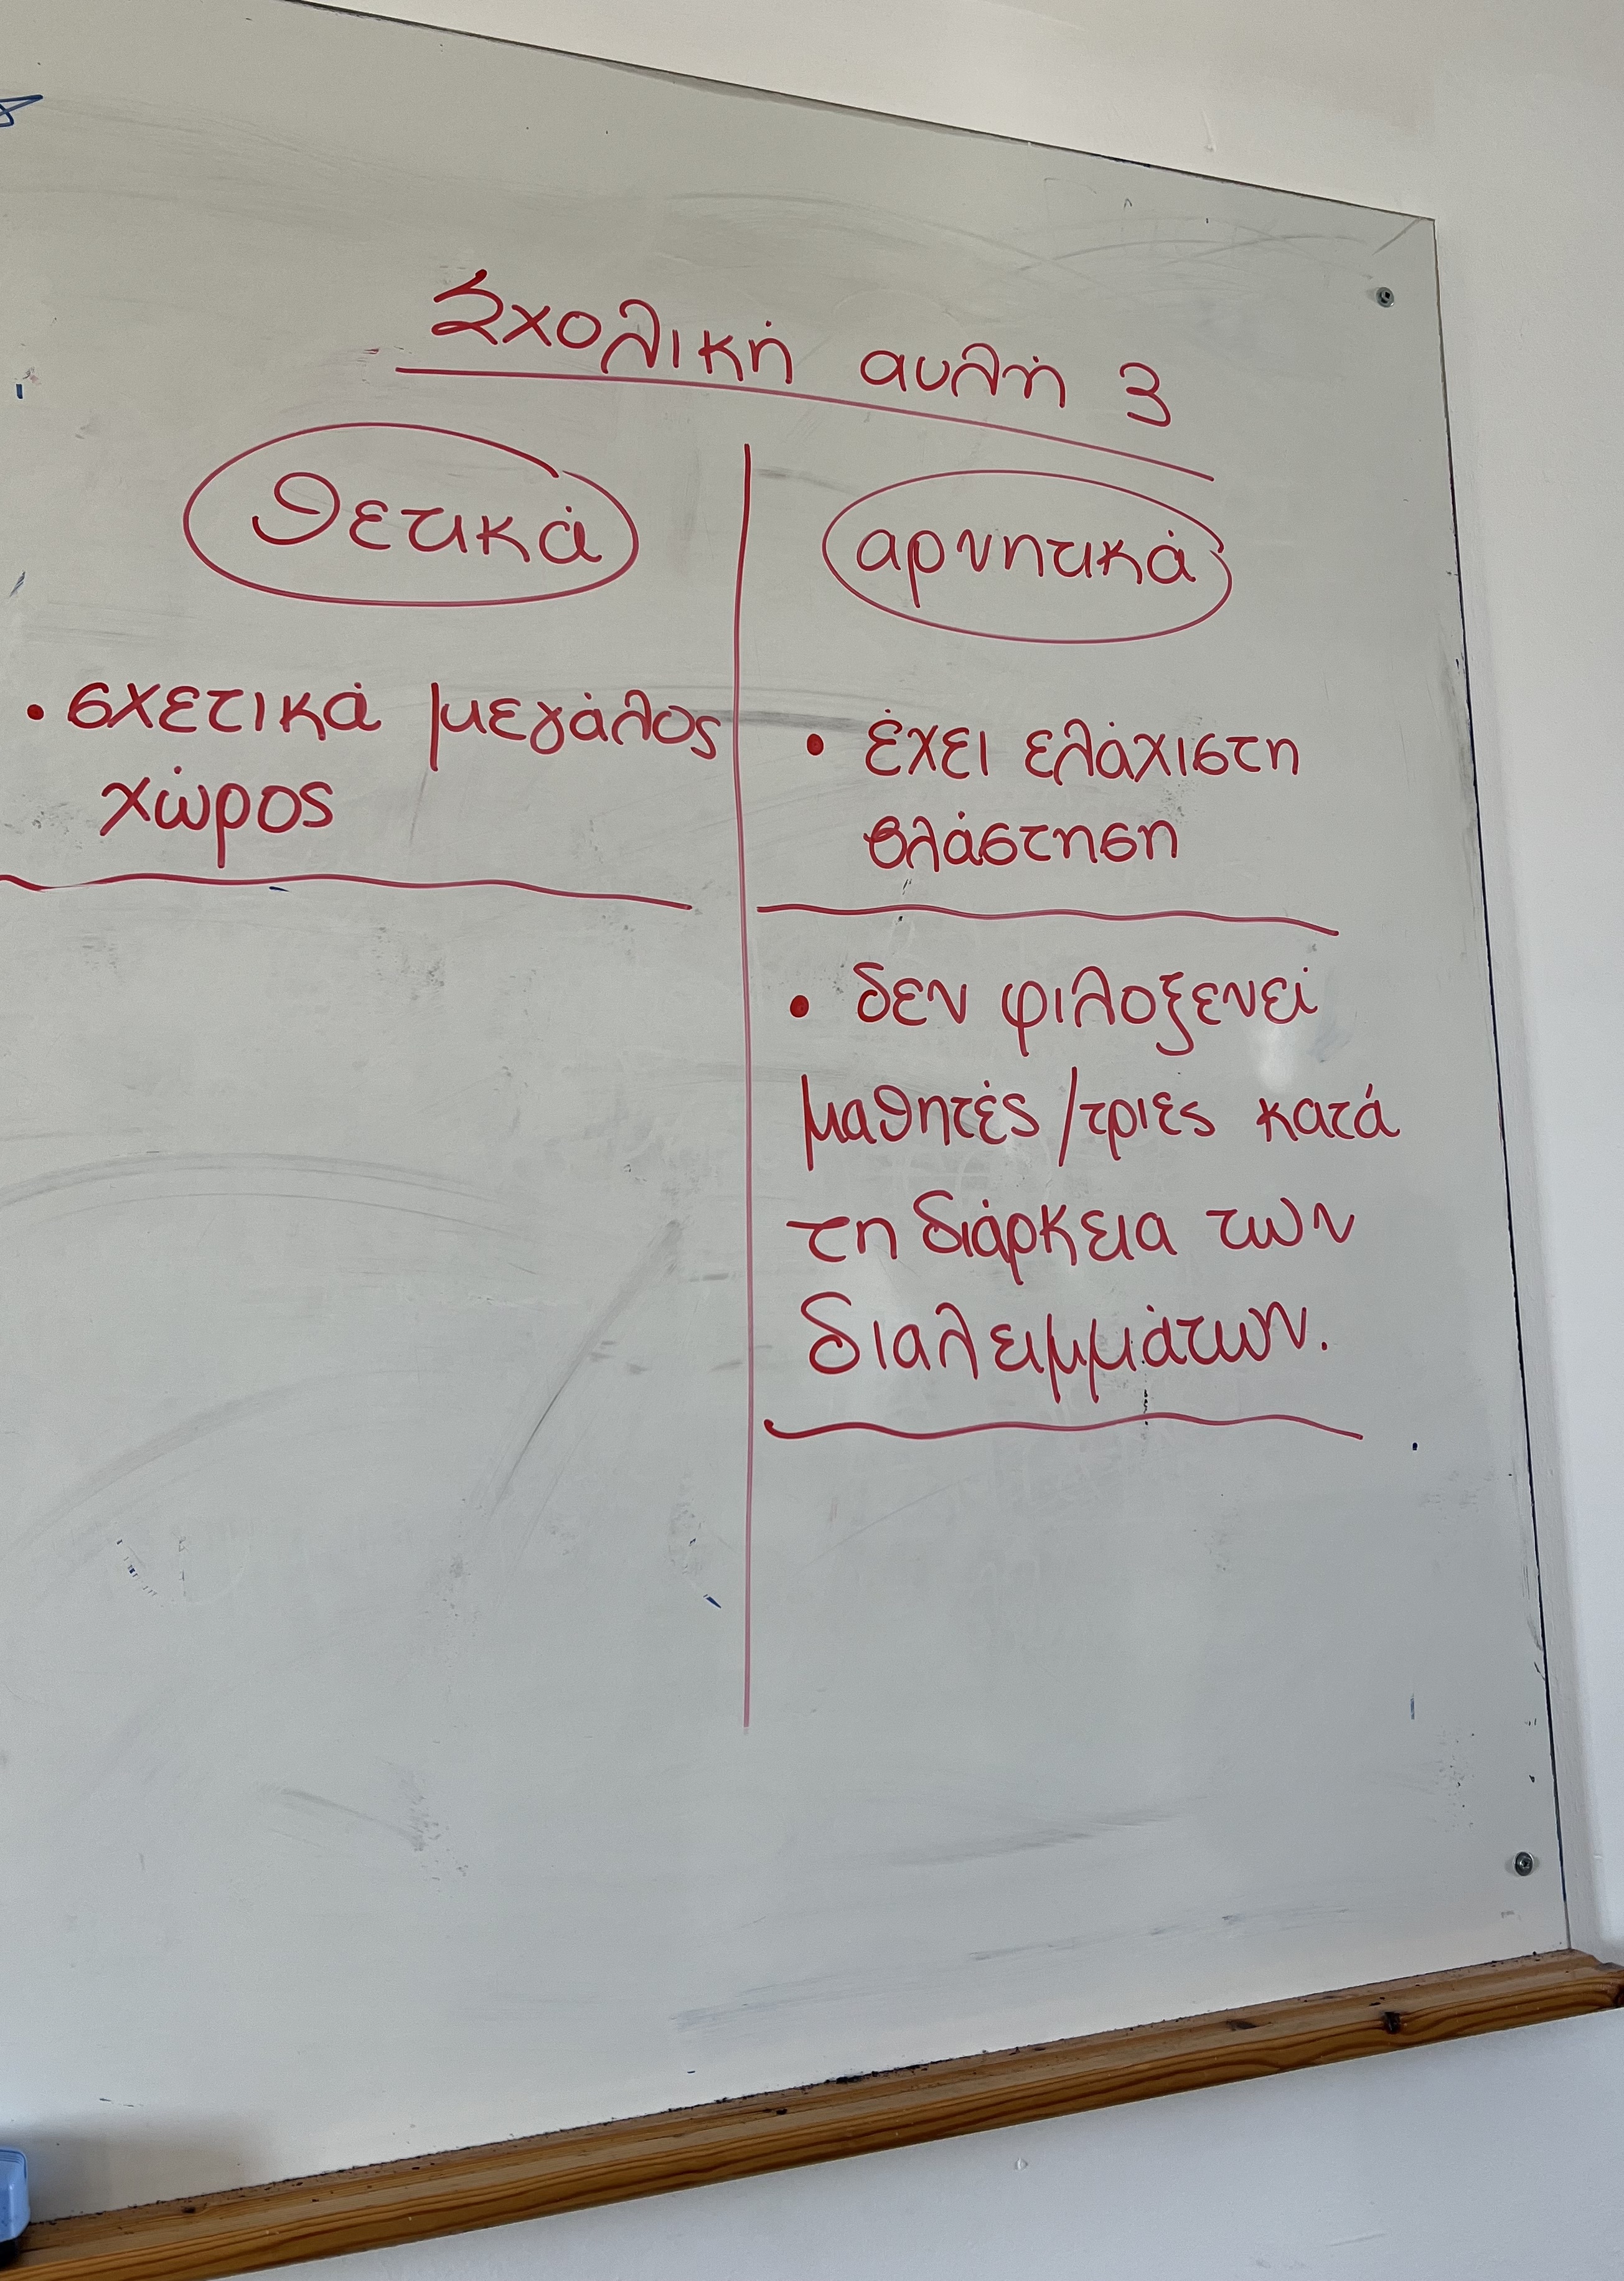 Σχολική αυλή 3
θετικά
• σχετικά μεγάλος
χώρος
αρνητικά
• έχει ελάχιστη
βλάστηση
• δεν φιλοξενεί
μαθητές/τριες κατά
τη διάρκεια των
διαλειμμάτων.